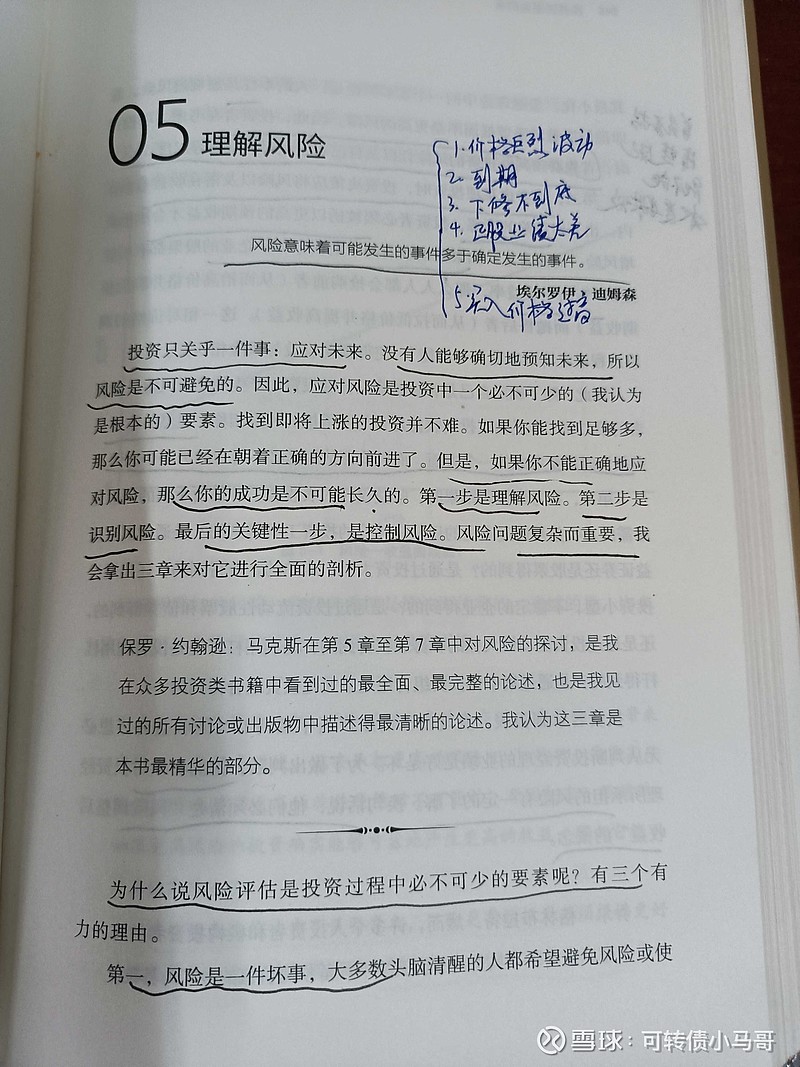 05 理解风险
1. 价格巨烈波动
2. 到期
3. 下修不到底
4. 正股业绩太差
5. 买入价格过高
风险意味着可能发生的事件多于确定发生的事件。
埃尔罗伊·迪姆森
投资只关乎一件事：应对未来。没有人能够确切地预知未来，所以
风险是不可避免的。因此，应对风险是投资中一个必不可少的（我认为
是根本的）要素。找到即将上涨的投资并不难。如果你能找到足够多，
那么你可能已经在朝着正确的方向前进了。但是，如果你不能正确地应
对风险，那么你的成功是不可能长久的。第一步是理解风险。第二步是
识别风险。最后的关键性一步，是控制风险。风险问题复杂而重要，我
会拿出三章来对它进行全面的剖析。
保罗·约翰逊：马克斯在第 5 章至第 7 章中对风险的探讨，是我
在众多投资类书籍中看到过的最全面、最完整的论述，也是我见
过的所有讨论或出版物中描述得最清晰的论述。我认为这三章是
本书最精华的部分。
为什么说风险评估是投资过程中必不可少的要素呢？有三个有
力的理由。
第一，风险是一件坏事，大多数头脑清醒的人都希望避免风险或使
雪球：可转债小马哥